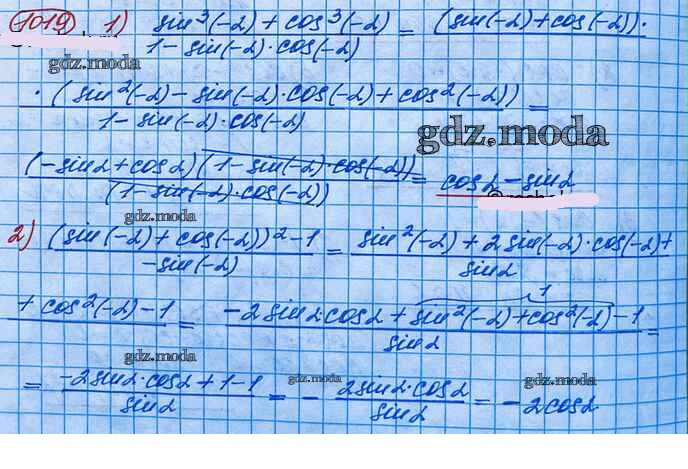 1019 1) sin³(-α) + cos³(-α) / 1 - sin(-α)·cos(-α) = (sin(-α) + cos(-α))·
gdz.moda
·(sin²(-α) - sin(-α)·cos(-α) + cos²(-α)) / 1 - sin(-α)·cos(-α) =
gdz.moda
(-sinα + cosα)(1 - sin(-α)·cos(-α)) / (1 - sin(-α)·cos(-α)) = cosα - sinα
gdz.moda
2) (sin(-α) + cos(-α))² - 1 / -sin(-α) = sin²(-α) + 2sin(-α)·cos(-α) + / sinα
+ cos²(-α) - 1 = -2sinα·cosα + sin²(-α) + cos²(-α) - 1 / sinα =
1
gdz.moda gdz.moda gdz.moda
= -2sinα·cosα + 1 - 1 / sinα = - 2sinα·cosα / sinα = -2cosα